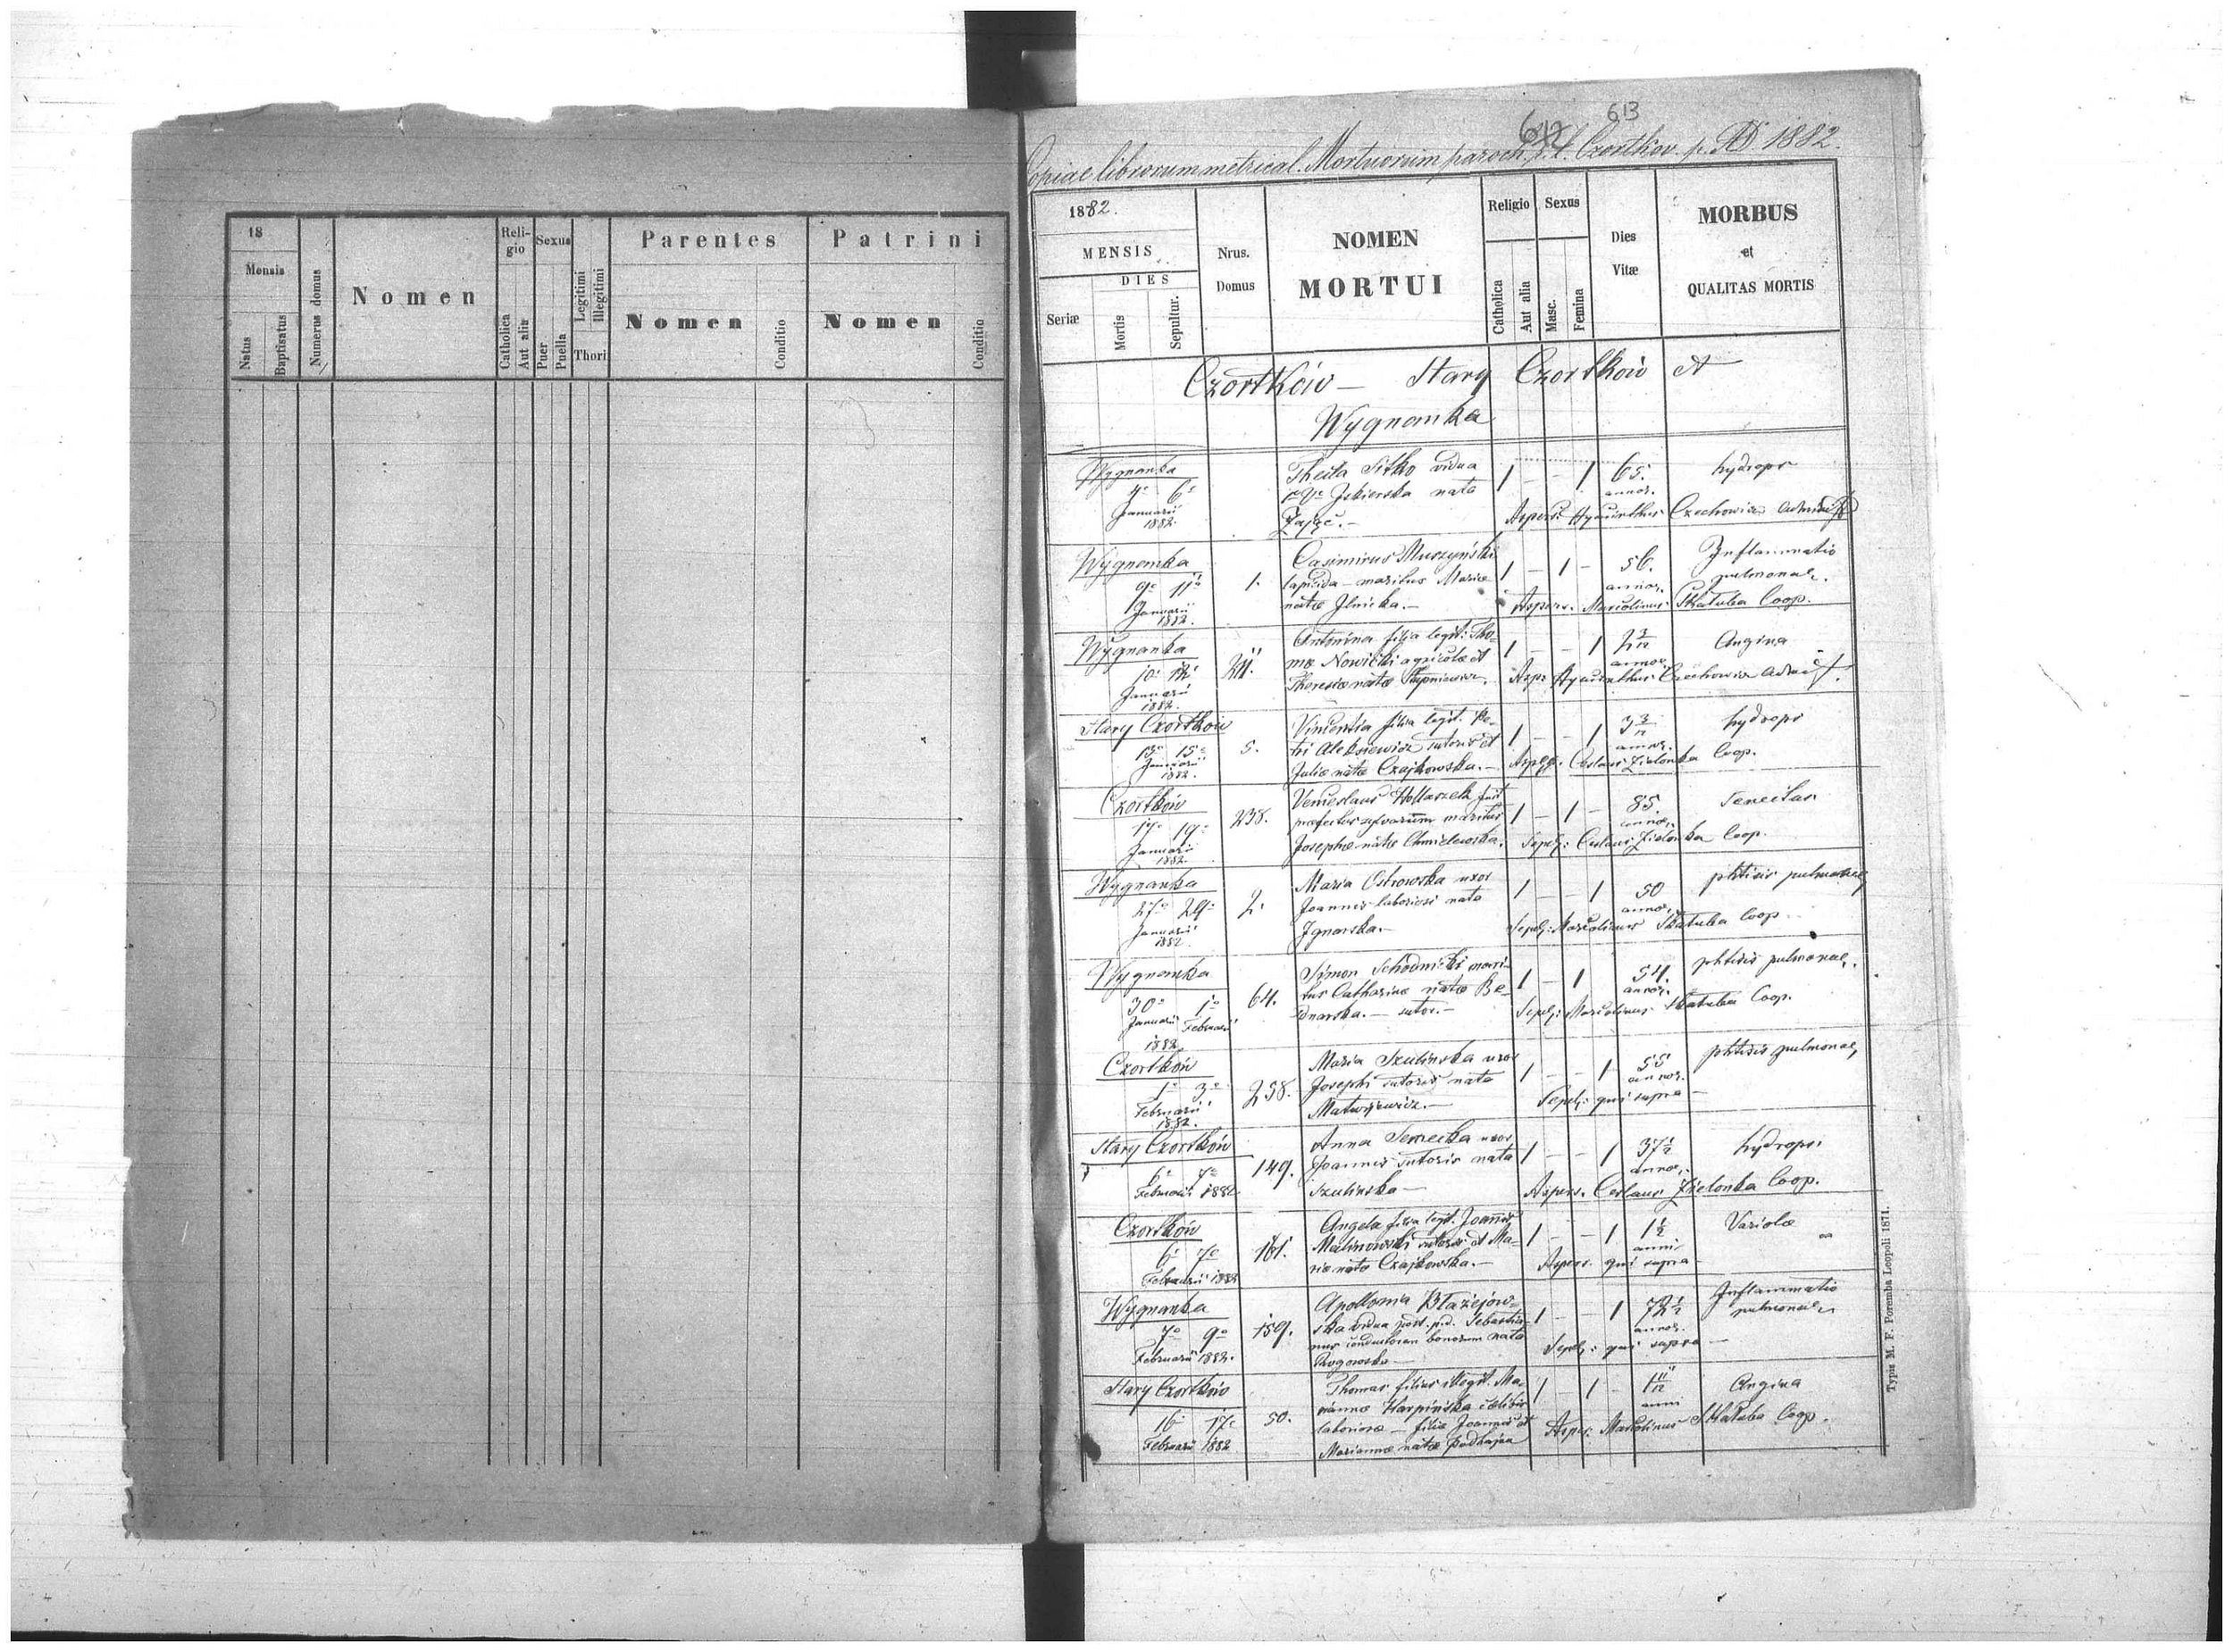 18
Mensis
Natus
Baptisatus
Numerus domus
Nomen
Reli-
gio
Catholica
Aut alia
Sexus
Puer
Puella
Legitimi
Illegitimi
Thori
Parentes
Nomen
Conditio
Patrini
Nomen
Conditio
613
Copiae librorum metrical. Mortuorum paroch. r. l. Czortkov. p. AD 1882.
1882.
MENSIS
DIES
Seriæ
Mortis
Sepultur.
Nrus.
Domus
NOMEN
MORTUI
Religio
Catholica
Aut alia
Sexus
Masc.
Femina
Dies
Vitæ
MORBUS
et
QUALITAS MORTIS
Czortków — Stary Czortków et
Wygnanka
Wygnanka
6a
Januarii
1882.
Thecla Sitko vidua
Iskierska nata
Zając.—
1 — — 1 65. annor.
hydrops
Aspers. Hyacinthus Czechowicz
Wygnanka
9a 11a
Januarii
1882.
1.
Casimirus Muszyński
lapicida — maritus Mariæ
natæ Ilnicka.—
1 — 1 — 56. annor.
Inflammatio
pulmonal.
Aspers. Marcolinus Skałuba Coop.
Wygnanka
10a 12a
Januarii
1882.
211.
Antonina filia legit: Tho-
mæ Nowicki agricolæ et
Theresiæ natæ
1 — — 1 2 3/12 annor.
Angina
Asp: Hyacinthus Czechowicz
Stary Czortków
13a 15a
Januarii
1882.
5.
Vincentia filia legit. Pe-
tri Aleksiewicz sutoris et
Juliæ natæ Czajkowska.—
1 — — 1 3 3/12 annor.
hydrops
Ceslaus Zielonka Coop.
Czortków
17a 19a
Januarii
1882.
238.
Venceslaus Hollaszek fuit
præfectus sylvarum maritus
Josephæ natæ Chmielewska.
1 — 1 — 85. annor.
Senectus
Sepel: Ceslaus Zielonka Coop.
Wygnanka
27a 29a
Januarii
1882.
2.
Maria Ostrowska uxor
Joannis laboriosi nata
Ignarska.—
1 — — 1 50 annor.
phtisis pulmonal,
Sepel: Marcolinus Skałuba Coop
Wygnanka
30a 1a
Januarii Februarii
1882
64.
Simon Schodnicki mari-
tus Catharinæ natæ Be-
dnarska.— sutor.—
1 — 1 54. annor.
phtisis pulmonal,
Sepel: Marcolinus Skałuba Coop.
Czortków
1a 3a
Februarii
1882.
258.
Maria Szulinska uxor
Josephi sutoris nata
Matwijewicz.—
1 — — 1 55 annor.
phtisis pulmonal,
Sepel: qui supra —
Stary Czortków
6a 7a
Februarii 1882
149.
Anna Semecka uxor
Joannis sutoris nata
Szulinska —
1 — — 1 37 1/2 annor.
hydrops
Aspers. Ceslaus Zielonka Coop.
Czortków
6a 7a
Februarii 1882
161.
Angela filia legit. Joannis
Malinowski sutoris et Ma-
riæ nata Czajkowska.—
1 — — 1 1 1/2 anni
Variolæ
Aspers. qui supra —
Wygnanka
7a 9a
Februarii 1882.
159.
Apollonia Błażejow-
ska vidua post. p.d. Sebastia-
num conductorem bonorum nata
Rogowska —
1 — — 1 72 1/2 annor.
Inflammatio
pulmonal,
Sepel: qui supra —
Stary Czortków
16a 17a
Februarii 1882
50.
Thomas filius illegit. Ma-
riannæ Karpińska cælibis
laboriosæ — filiæ Joannis et
Mariannæ natæ Podhajna
1 — 1 — 1 11/12 anni
Angina
Aspers: Marcolinus Skałuba Coop.
Typis M. F. Poremba Leopoli 1871.